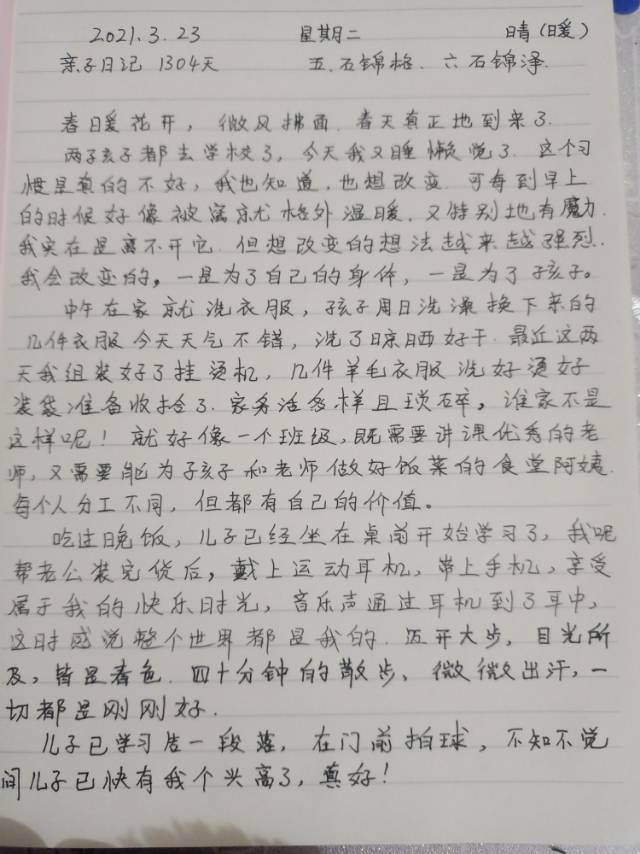 2021.3.23 星期二 晴(暖)
亲子日记 1304天 五.石锦格. 六石锦泽.
春暖花开，微风拂面.春天真正地到来了.
两子孩子都去学校了，今天我又睡懒觉了.这个习
惯是真的不好，我也知道，也想改变.可每到早上
的时候好像被窝就格外温暖.又特别地有魔力.
我实在是离不开它.但想改变的想法越来越强烈.
我会改变的，一是为了自己的身体，一是为了孩子。
中午在家就洗衣服，孩子周日洗澡换下来的
几件衣服今天天气不错，洗了晾晒好干.最近这两
天我组装好了挂烫机，几件羊毛衣服洗好烫好
装袋准备收拾了.家务活多样且琐碎，谁家不是
这样呢！就好像一个班级，既需要讲课优秀的老
师，又需要能为子孩子和老师做好饭菜的食堂阿姨.
每个人分工不同，但都有自己的价值。
吃过晚饭，儿子已经坐在桌前开始学习了，我呢
帮老公装完货后，戴上运动耳机，带上手机，享受
属于我的快乐时光，音乐声通过耳机到了耳中，
这时感觉整个世界都是我的.迈开大步，目光所
及，皆是春色.四十分钟的散步、微微出汗，一
切都是刚刚好.
儿子已学习告一段落，在门前拍球，不知不觉
间儿子已快有我个头高了，真好！